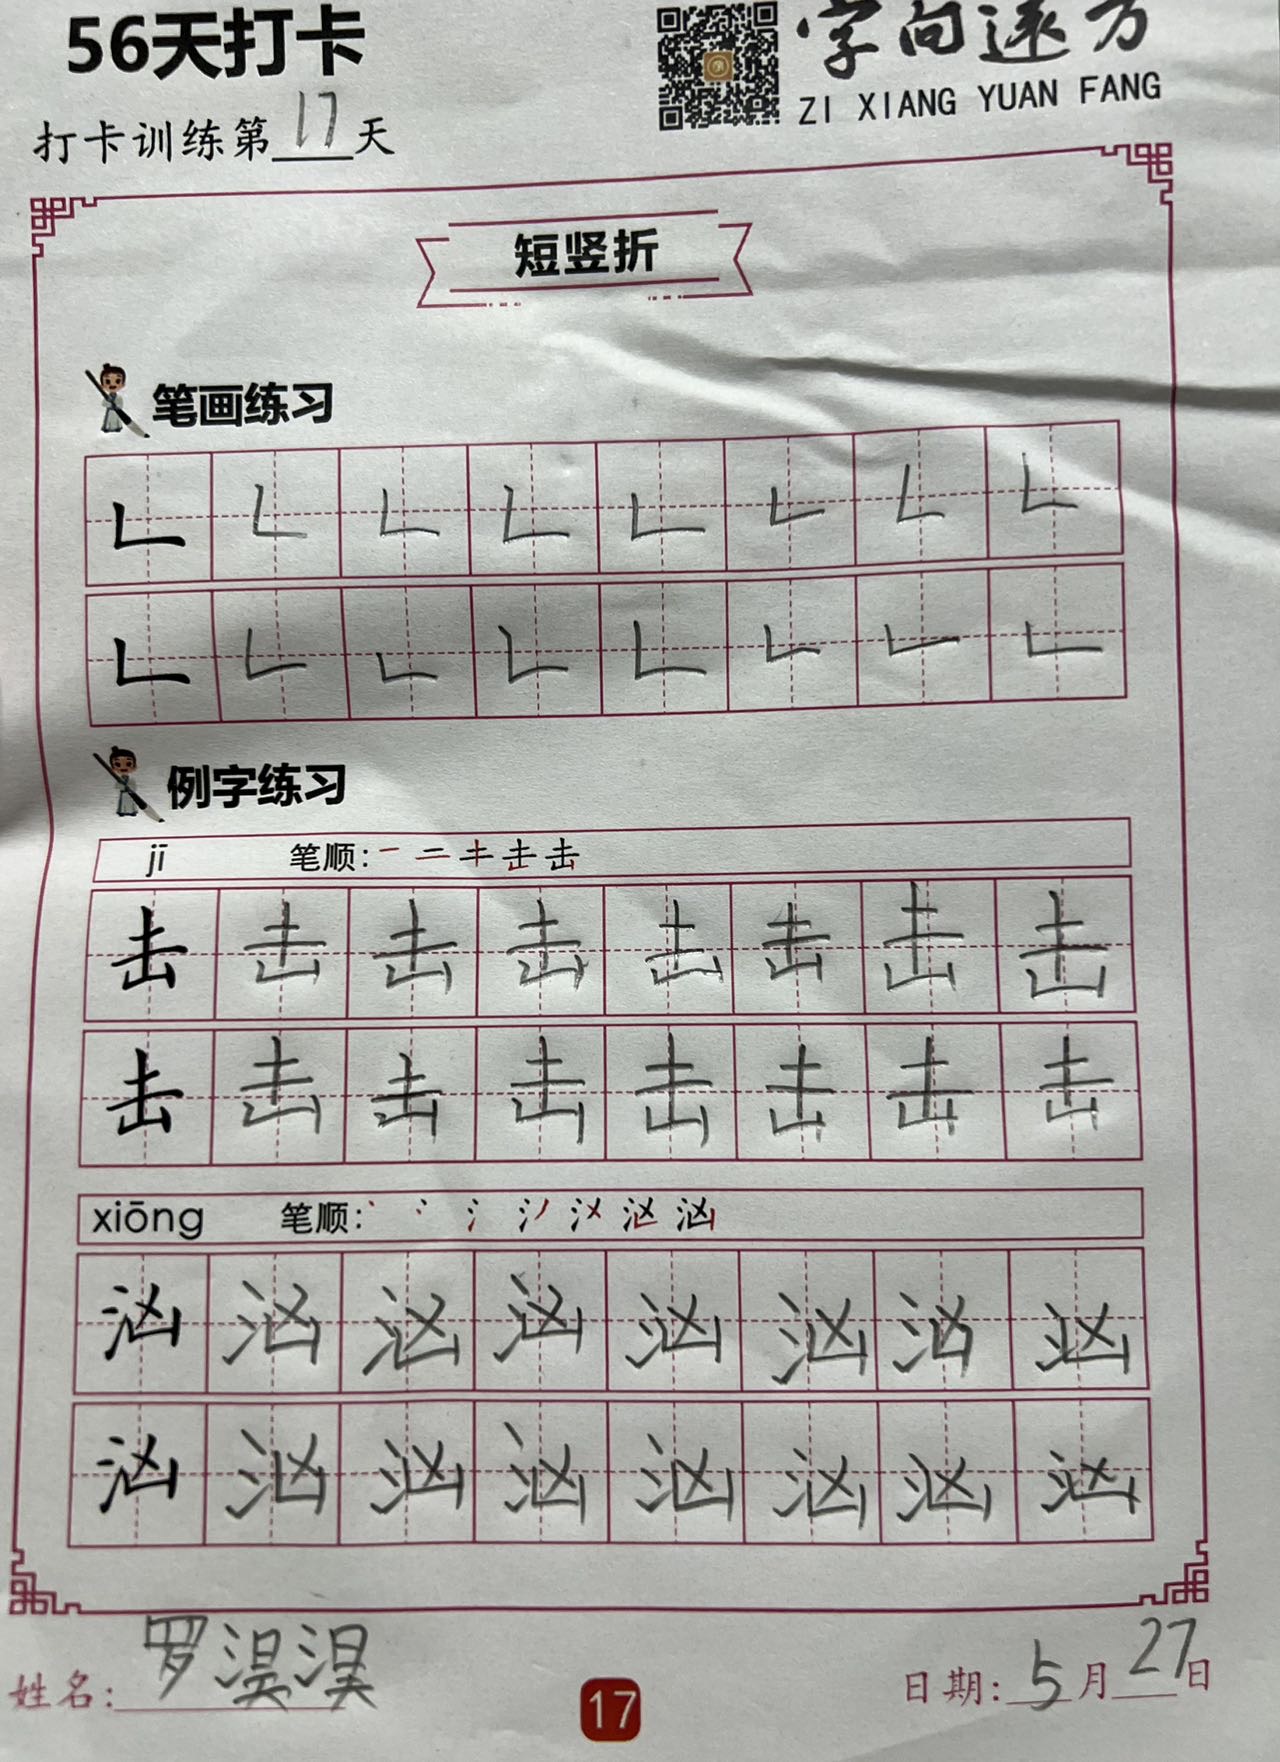 56天打卡
字向远方
ZI XIANG YUAN FANG
打卡训练第17天
短竖折
笔画练习
例字练习
jī 笔顺:
击 击 击 击 击 击 击 击
击 击 击 击 击 击 击 击
xiōng 笔顺:
汹 汹 汹 汹 汹 汹 汹 汹
汹 汹 汹 汹 汹 汹 汹 汹
姓名: 罗淏淏
日期: 5月27日
17